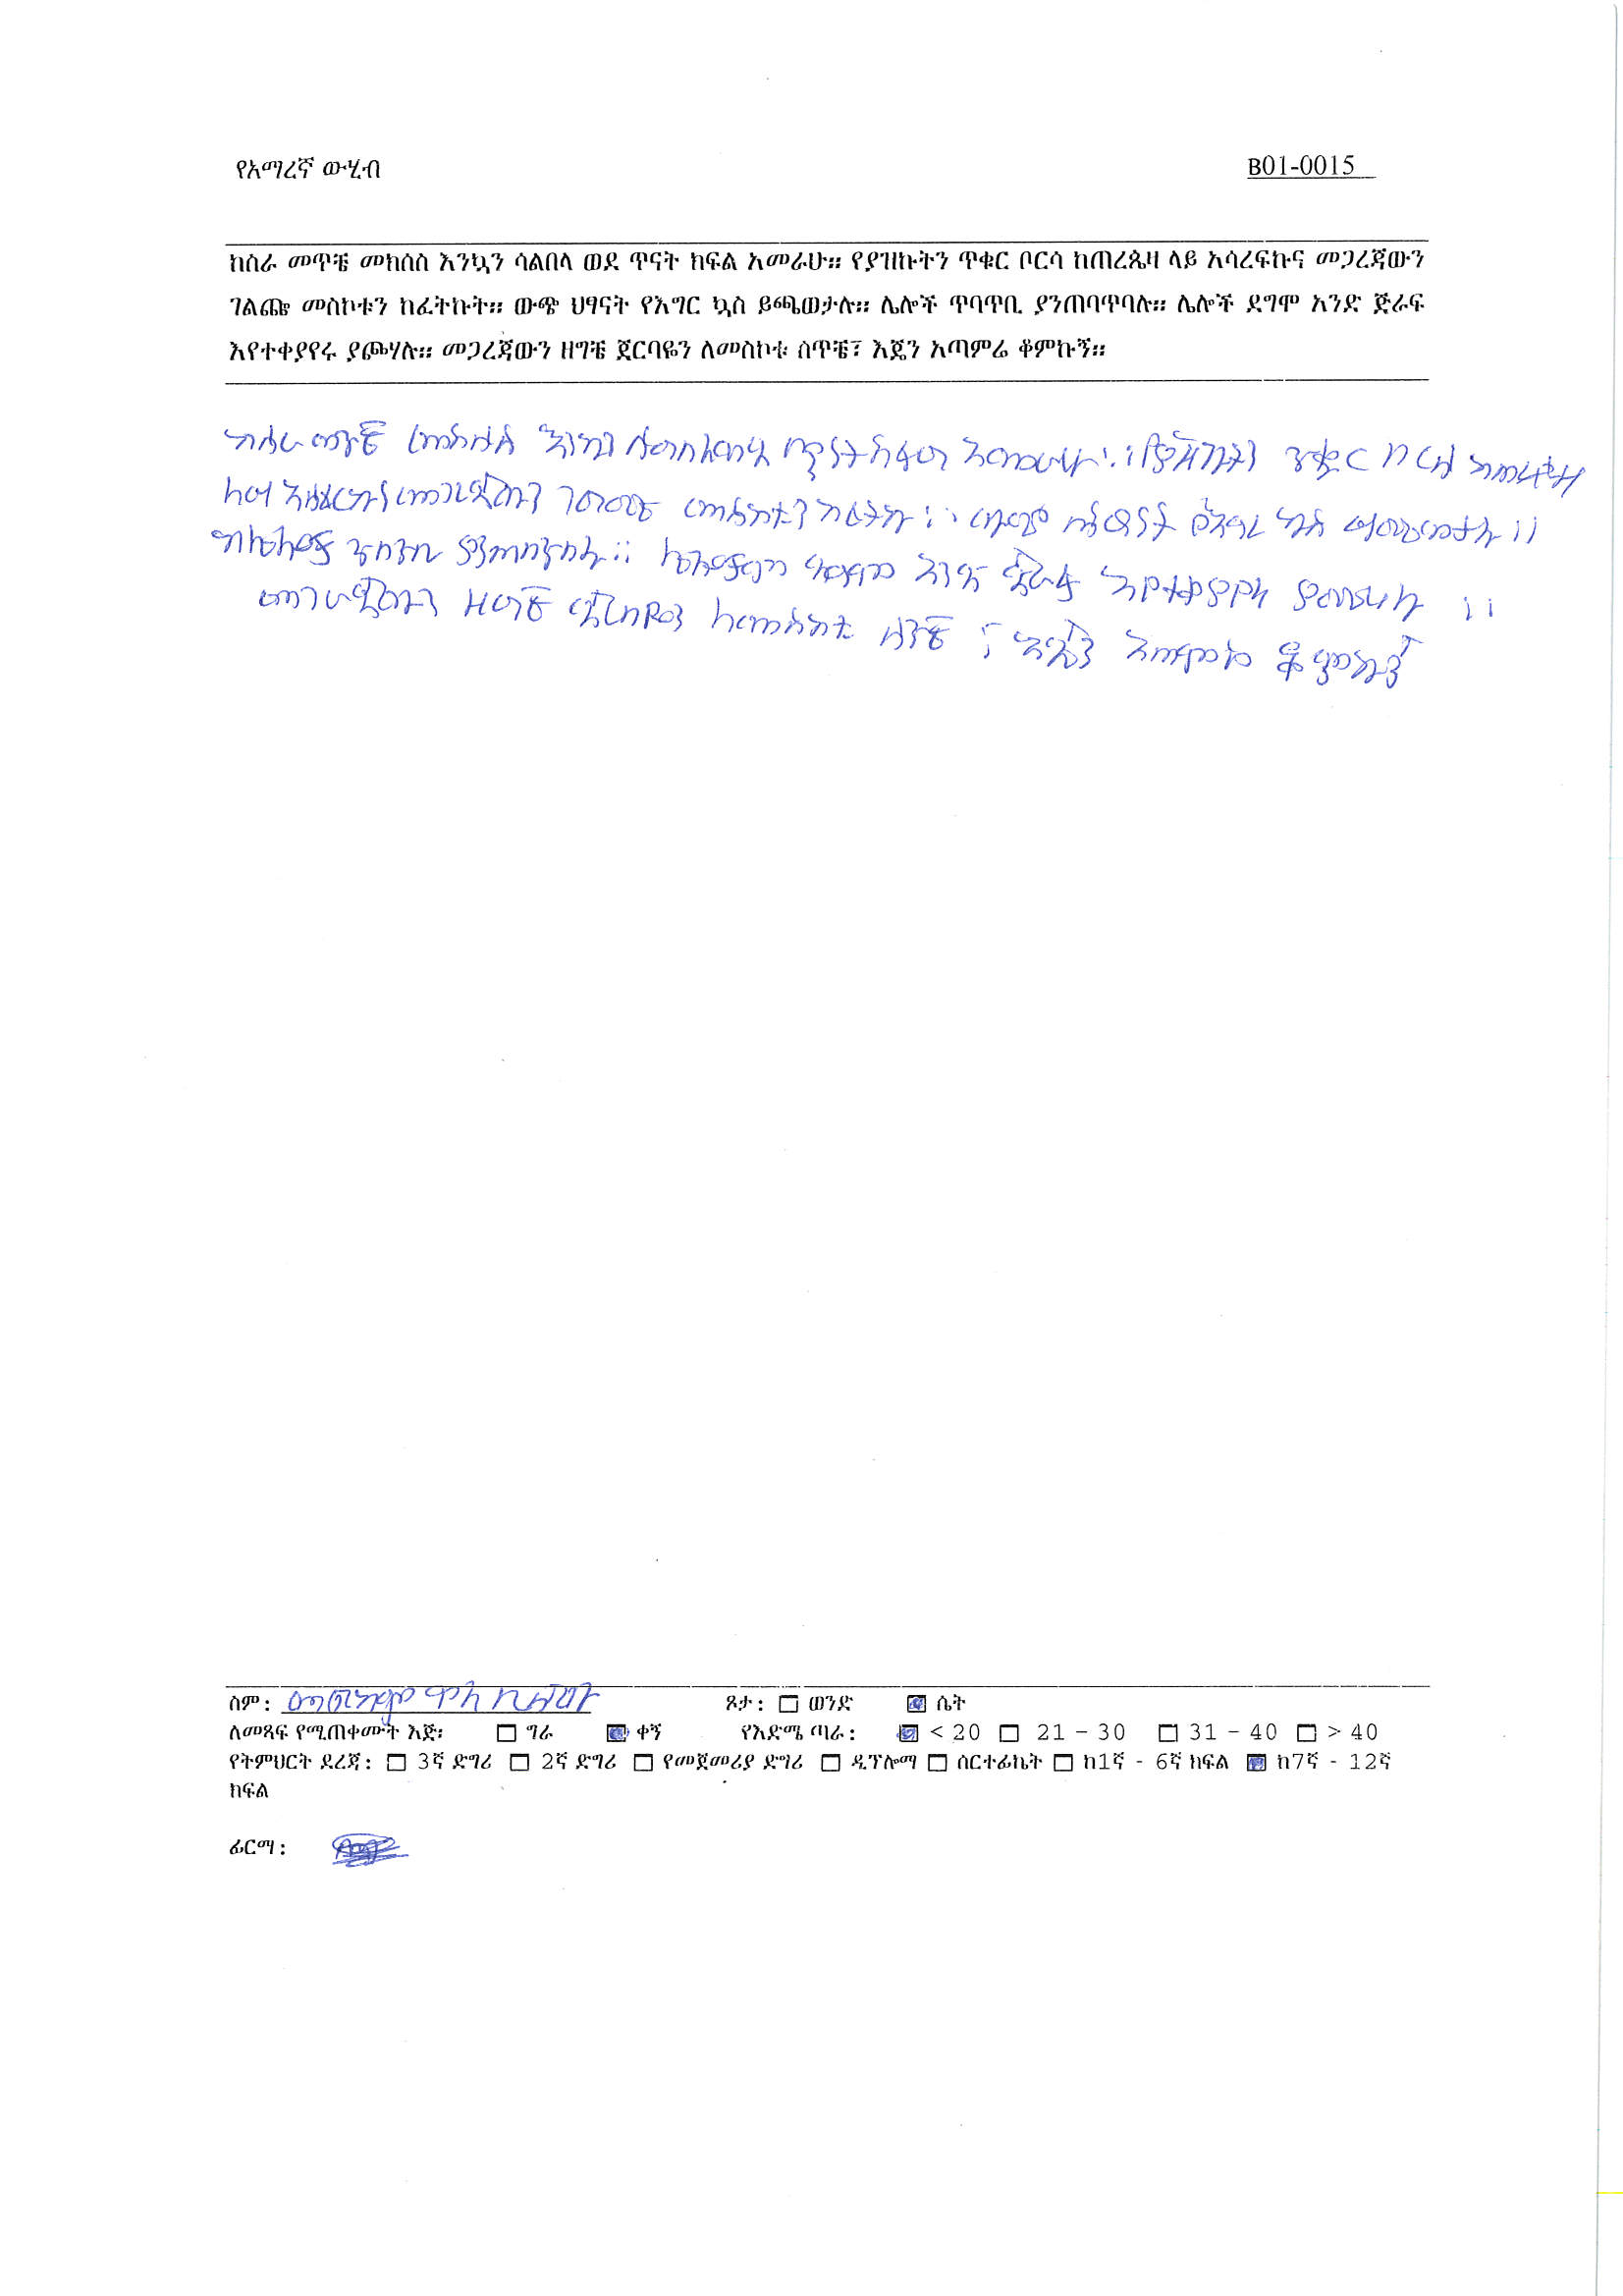 የአማረኛ ውሂብ B01-0015
ከስራ መጥቼ መክሰስ እንኳን ሳልበላ ወደ ጥናት ክፍል አመራሁ። የያዝኩትን ጥቁር ቦርሳ ከጠረጴዛ ላይ አሳረፍኩና መጋረጃውን
ገልጬ መስኮቱን ከፈትኩት። ውጭ ህፃናት የእግር ኳስ ይጫወታሉ። ሌሎች ጥባጥቢ ያንጠባጥባሉ። ሌሎች ደግሞ አንድ ጅራፍ
እየተቀያየሩ ያጮሃሉ። መጋረጃውን ዘግቼ ጀርባዬን ለመስኮቱ ሰጥቼ፣ እጄን አጣምሬ ቆምኩኝ።
ከስራ መጥቼ መክሰስ እንኳን ሳልበላ ወደ ጥናት ክፍል አመራሁ።የያዝኩትን ጥቁር ቦርሳ ከጠረጴዛ
ላይ አሳረፍኩና መጋረጃውን ገልጬ መስኮቱን ከፈትኩ። ውጭ ህፃናት የእግር ኳስ ይጫወታሉ።
ሌሎች ጥባጥቢ ያንጠባጥባሉ። ሌሎች ደግሞ አንድ ጅራፍ እየተቀያየሩ ያጮሃሉ ።
መጋረጃውን ዘግቼ ጀርባዬን ለመስኮቱ ሰጥቼ ፣ እጄን አጣምሬ ቆምኩኝ
ስም: ጾታ: ወንድ ሴት
ለመጻፍ የሚጠቀሙት እጅ: ግራ ቀኝ የእድሜ ጣራ: < 20 21 - 30 31 - 40 > 40
የትምህርት ደረጃ: 3ኛ ድግሪ 2ኛ ድግሪ የመጀመሪያ ድግሪ ዲፕሎማ ሰርተፊኬት ከ1ኛ - 6ኛ ክፍል ከ7ኛ - 12ኛ
ክፍል
ፊርማ: